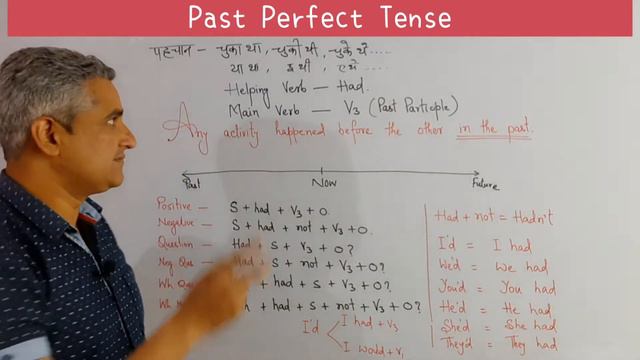 Past Perfect Tense
पहचान – चुका था, चुकी थी, चुके थे ....
या था, ई थी, ए थे ....
Helping Verb – Had.
Main Verb – V3 (Past Participle)
Any activity happened before the other in the past.
Past Now Future
Positive – S + had + V3 + O.
Negative – S + had + not + V3 + O.
Question – Had + S + V3 + O?
Neg Ques – Had + S + not + V3 + O?
Wh Ques + had + S + V3 + O?
Wh + had + S + not + V3 + O?
I'd
I had + V3
I would + V1
Had + not = Hadn't
I'd = I had
We'd = We had
You'd = You had
He'd = He had
She'd = She had
They'd = They had